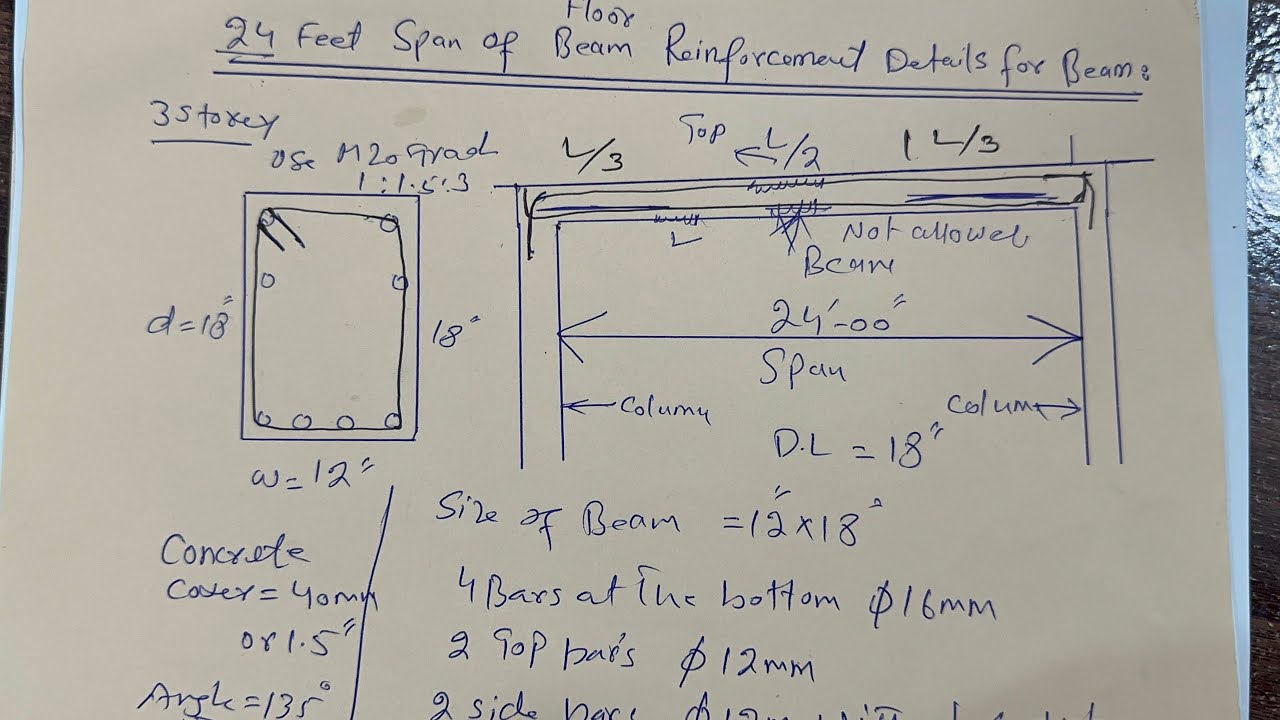 Floor
24 Feet Span of Beam Reinforcement Details for Beam:
3 Storey
Use M20 Grad
1:1.5:3
L/3
Top
L/2
L/3
L
Not allowed
Beam
d=18"
18"
24'-00"
Span
Column
Column
D.L = 18"
w=12"
Size of Beam = 12"x18"
Concrete
Cover=40mm
or 1.5"
4 Bars at The bottom ϕ16mm
2 Top bars ϕ12mm
Angle=135°
2 side bars ϕ12mm